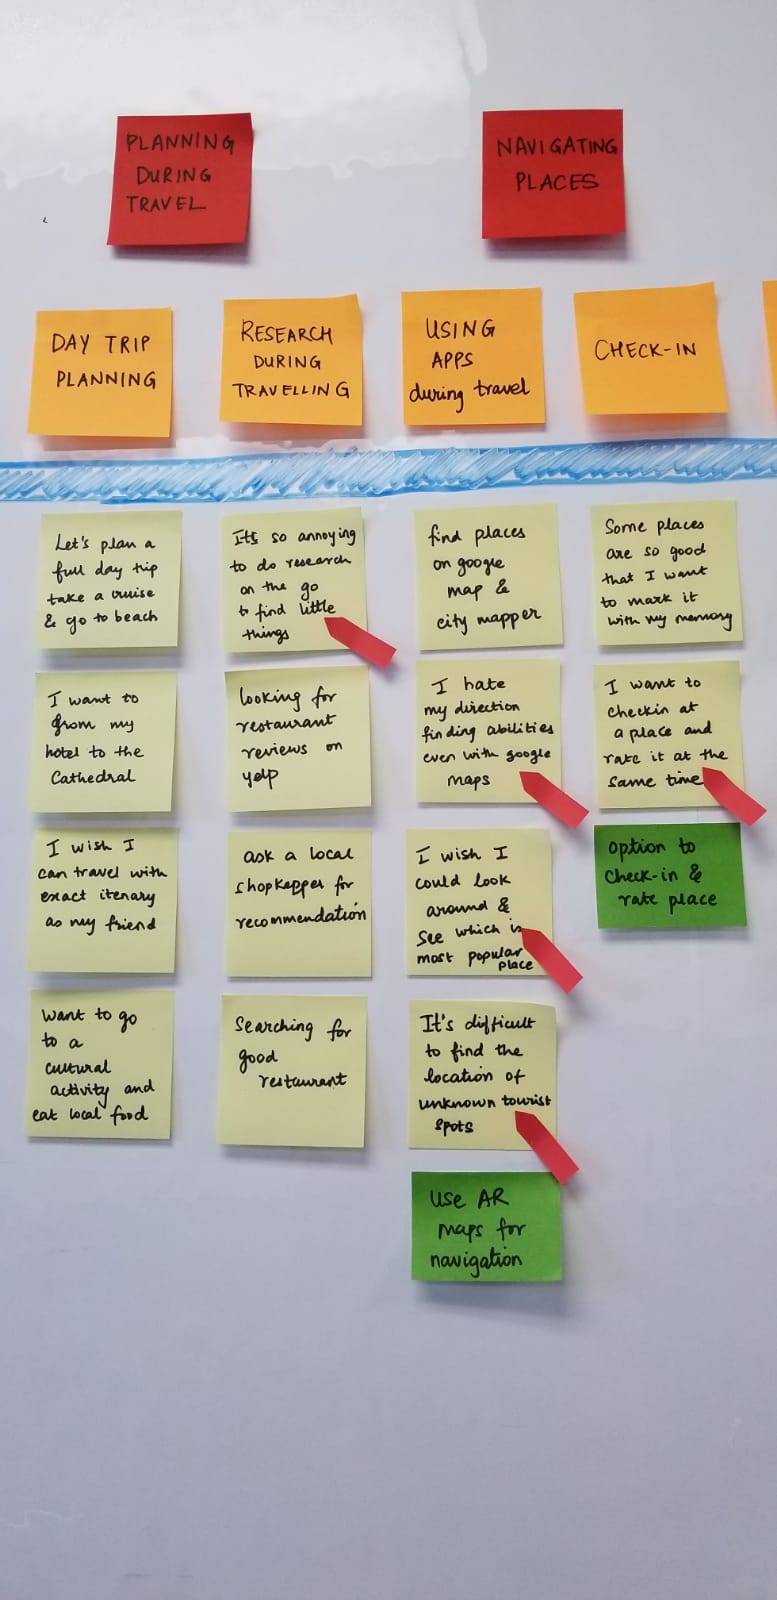 PLANNING
DURING
TRAVEL
NAVIGATING
PLACES
DAY TRIP
PLANNING
RESEARCH
DURING
TRAVELLING
USING
APPS
during travel
CHECK-IN
Let's plan a
full day trip
take a cruise
& go to beach
I want to
from my
hotel to the
Cathedral
I wish I
can travel with
exact itenary
as my friend
Want to go
to a
cultural
activity and
eat local food
It's so annoying
to do research
on the go
to find little
things
looking for
restaurant
reviews on
yelp
ask a local
shopkepper for
recommendation
Searching for
good
restaurant
find places
on google
map &
city mapper
I hate
my direction
finding abilities
even with google
maps
I wish I
could look
around &
See which is
most popular
place
It's difficult
to find the
location of
unknown tourist
spots
Use AR
maps for
navigation
Some places
are so good
that I want
to mark it
with my memory
I want to
checkin at
a place and
rate it at the
same time
option to
check-in &
rate place